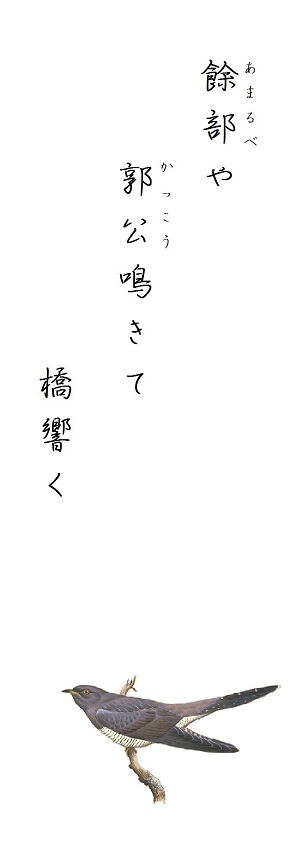 餘部や
あまるべ
郭公鳴きて
かっこう
橋響く